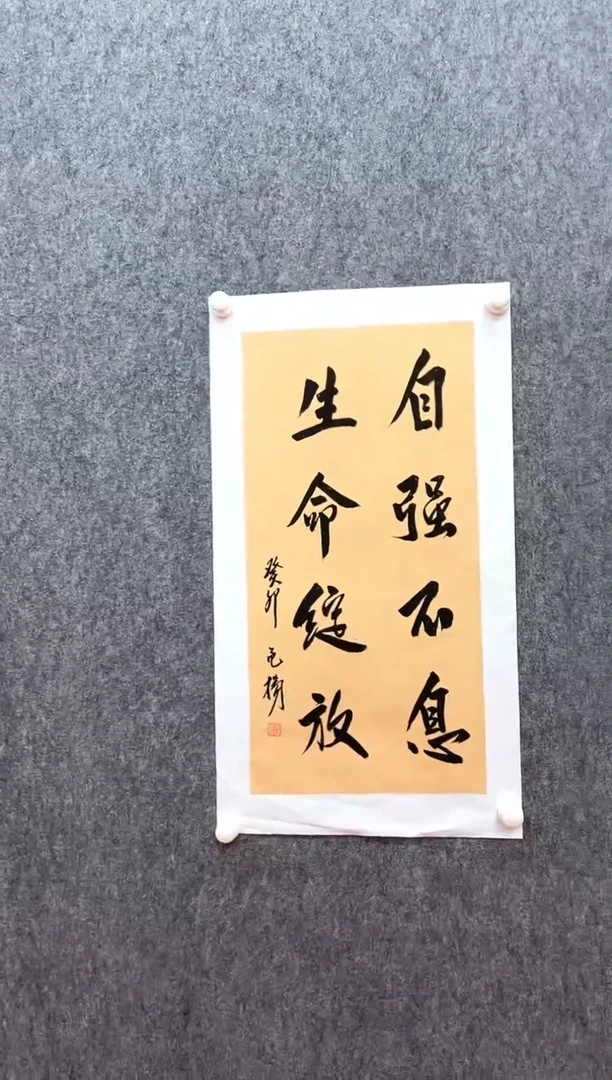 自强不息
生命绽放
癸卯